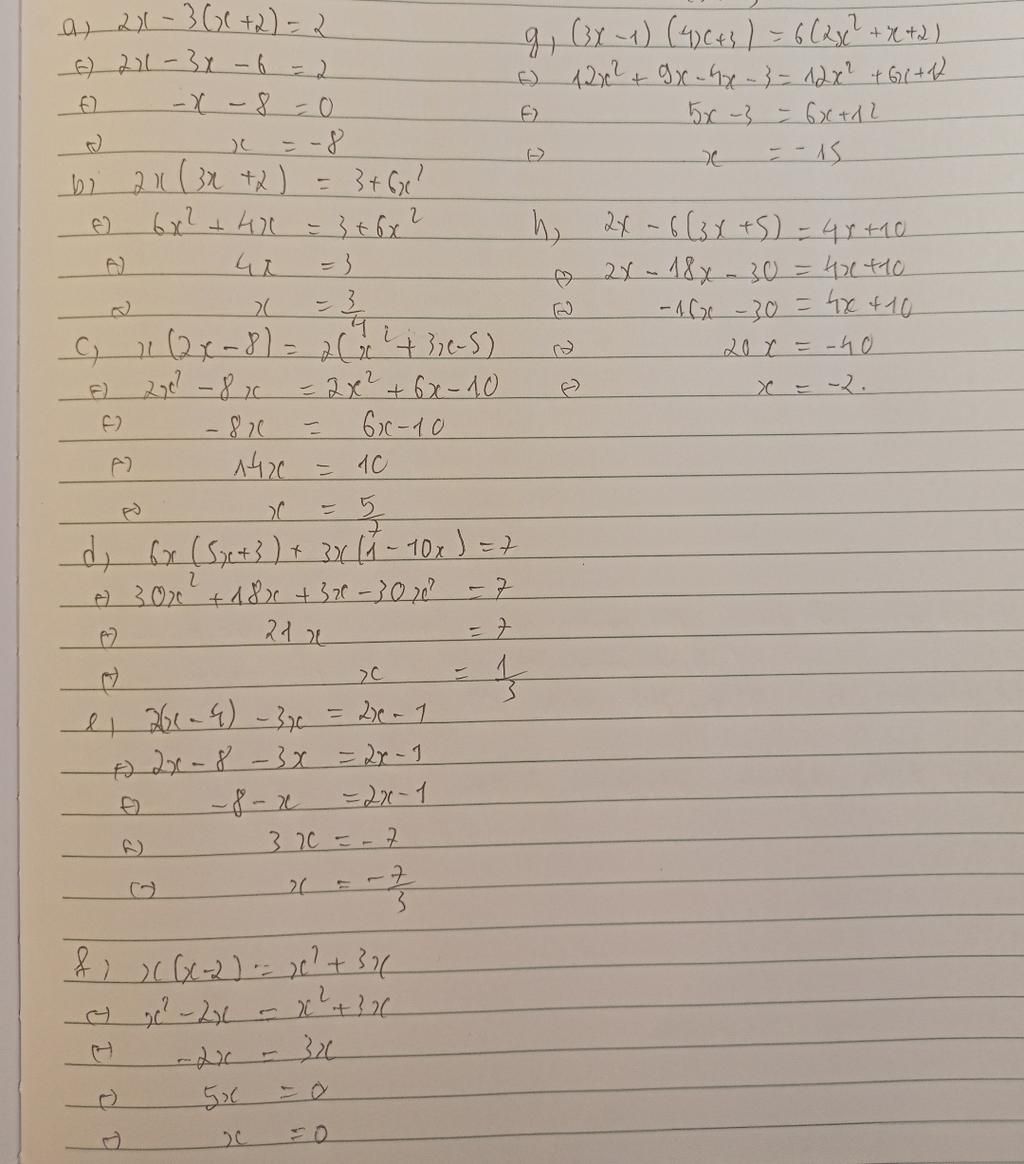 a, 2x - 3(x+2) = 2
⇔ 2x - 3x - 6 = 2
⇔ -x - 8 = 0
⇔ x = -8
b, 2x(3x+2) = 3+6x²
⇔ 6x² + 4x = 3+6x²
⇔ 4x = 3
⇔ x = 3/4
c, x(2x-8) = 2(x²+3x-5)
⇔ 2x² - 8x = 2x² + 6x - 10
⇔ -8x = 6x-10
⇔ 14x = 10
⇔ x = 5/7
d, 6x(5x+3) + 3x(1-10x) = 7
⇔ 30x² + 18x + 3x - 30x² = 7
⇔ 21x = 7
⇔ x = 1/3
e, 2(x-4) - 3x = 2x-1
⇔ 2x - 8 - 3x = 2x-1
⇔ -8-x = 2x-1
⇔ 3x = -7
⇔ x = -7/3
f, x(x-2) = x²+3x
⇔ x²-2x = x²+3x
⇔ -2x = 3x
⇔ 5x = 0
⇔ x = 0
g, (3x-1)(4x+3) = 6(2x²+x+2)
⇔ 12x² + 9x - 4x - 3 = 12x² + 6x + 12
⇔ 5x - 3 = 6x+12
⇔ x = -15
h, 2x - 6(3x+5) = 4x+10
⇔ 2x - 18x - 30 = 4x+10
⇔ -16x - 30 = 4x+10
⇔ 20x = -40
⇔ x = -2.